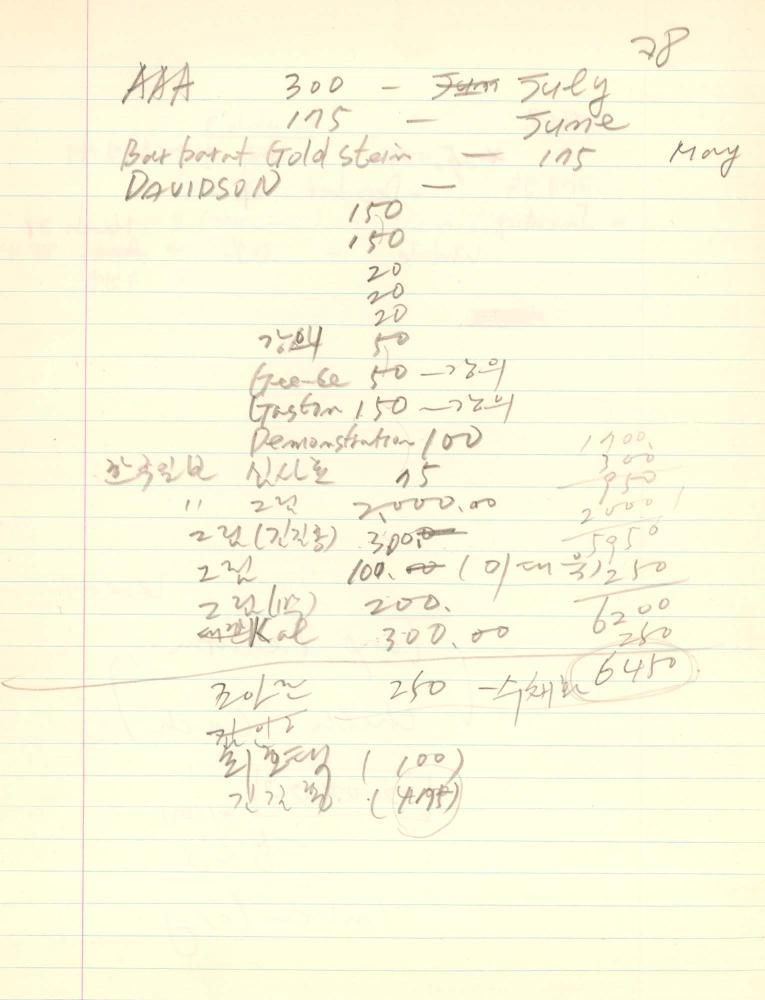 78
AAA 300 - June July
175 — June
Barbarat Goldstein — 175 May
DAVIDSON —
150
150
20
20
20
강의 50
Gee-se 50 — 강의
Gaston 150 — 강의
Demonstration 100
한국일보 심사료 75
" 그림 2,000.00
그림 (김진홍) 300.
그림 100.00 (이대욱)
그림 200.
Kal 300.00
300
950
2000
5950
250
6200
250
6450
조아란 250 - 수채화
(100)